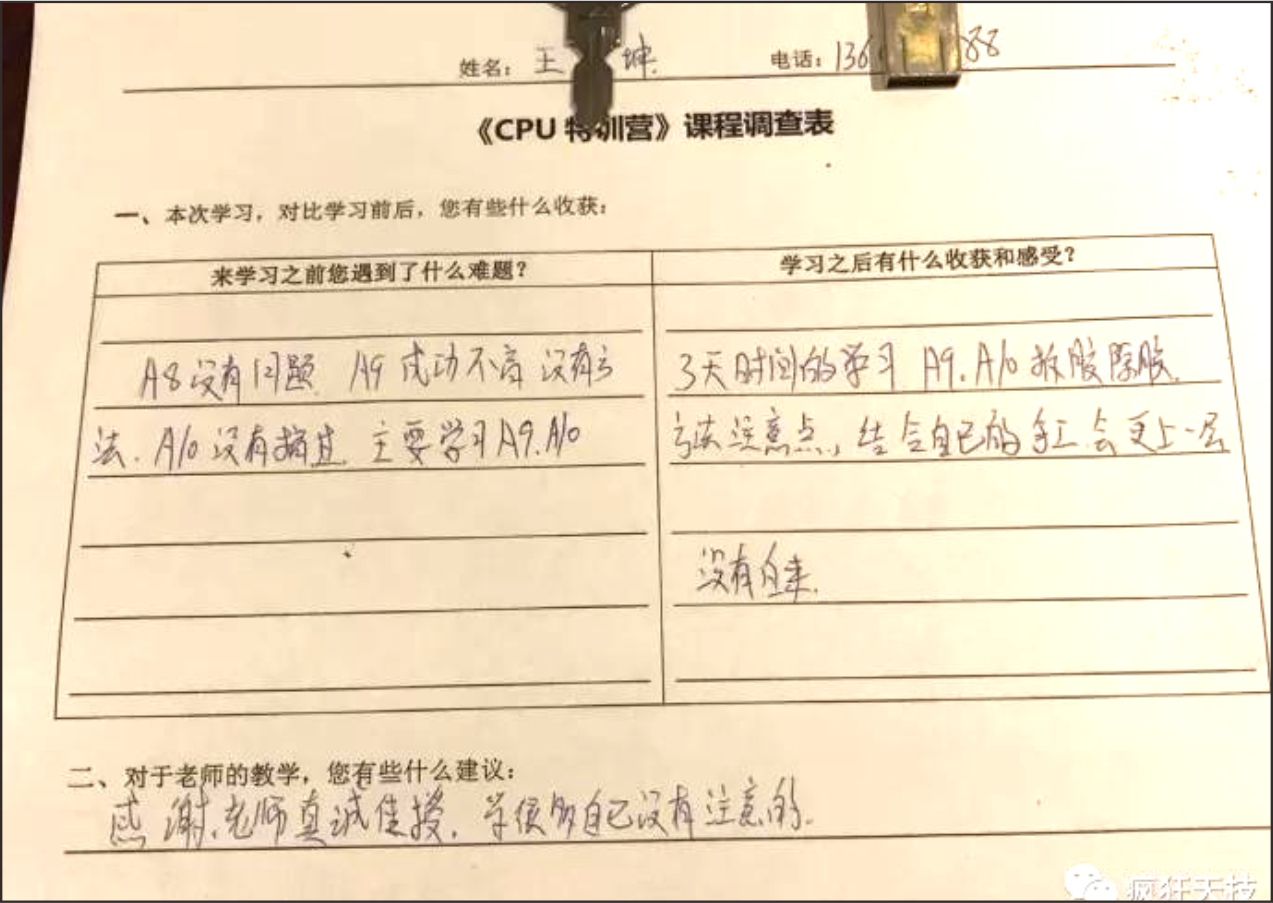 姓名: 王 坤. 电话: 136 88
《CPU 特训营》课程调查表
一、本次学习，对比学习前后，您有些什么收获:
来学习之前您遇到了什么难题? 学习之后有什么收获和感受?
A8没有问题. A9成功不高 没有方
法. A10没有搞过. 主要学习A9.A10
3天时间的学习 A9.A10 拆胶除胶.
方法注意点, 结合自己的手工会更上一层
没有白来.
二、对于老师的教学，您有些什么建议:
感谢老师真诚传授. 学很多自己没有注意的.
疯狂天技